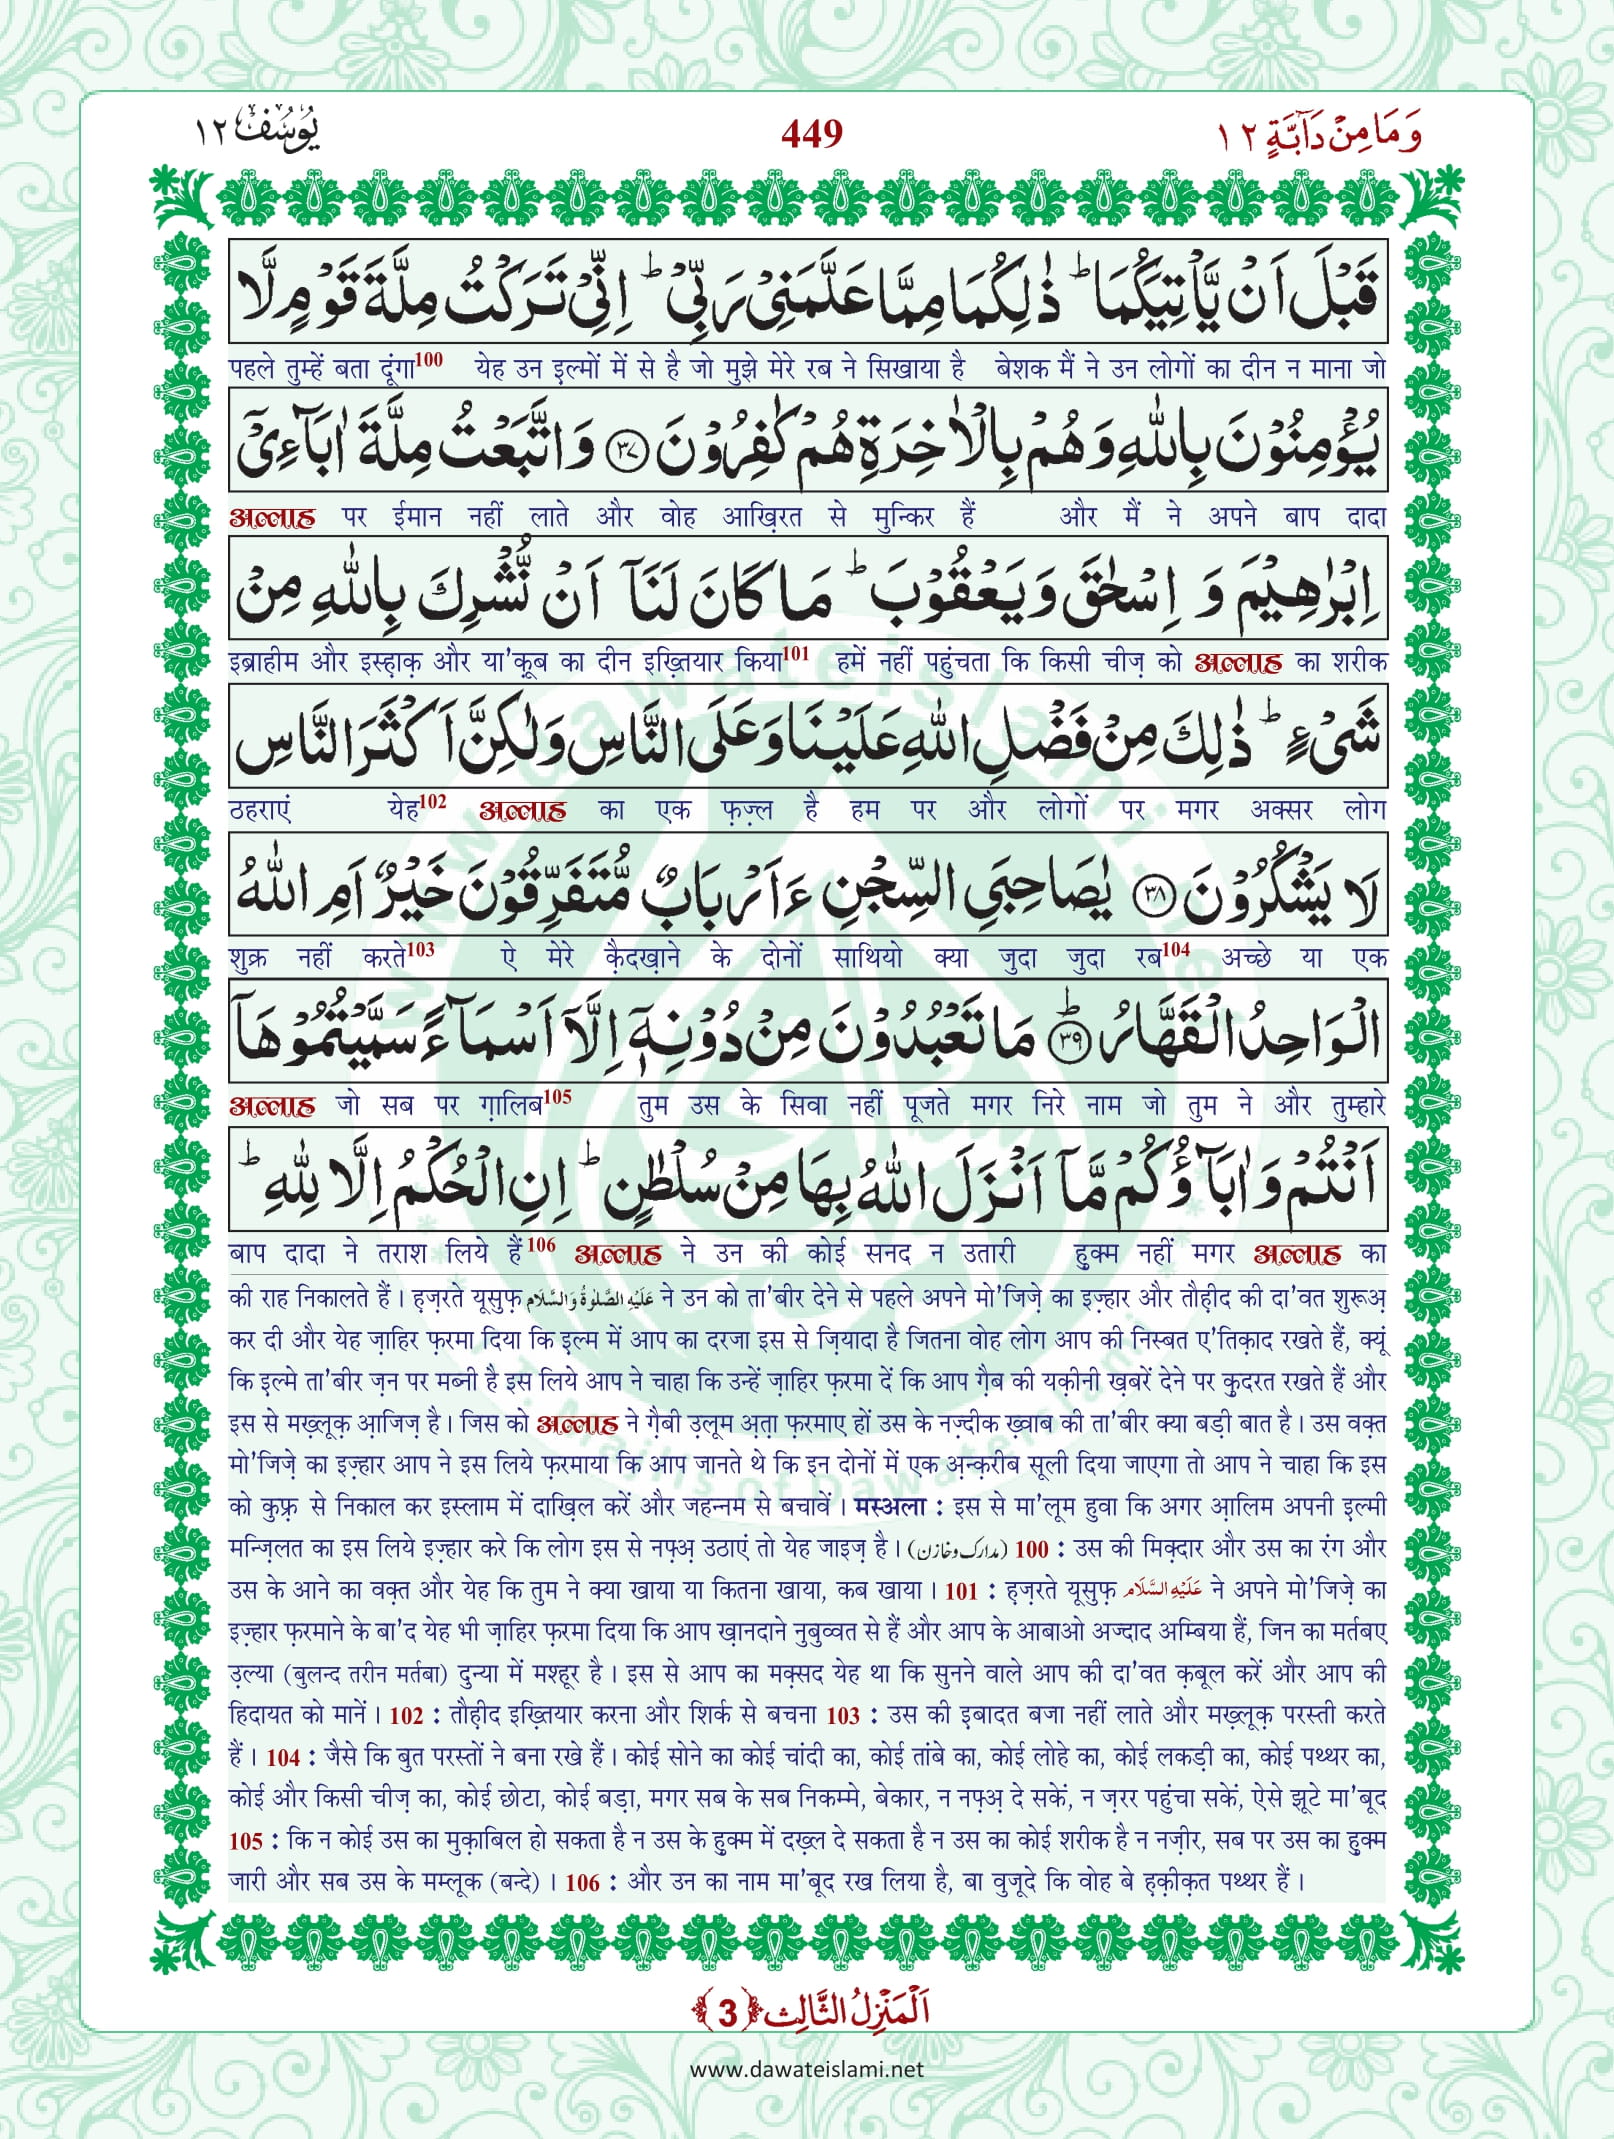 يُوسُف ١٢ 449 وَمَا مِنْ دَآبَّةٍ ١٢
قَبْلَ اَنْ يَّاْتِيَكُمَا ؕ ذٰلِكُمَا مِمَّا عَلَّمَنِیْ رَبِّیْ ؕ اِنِّیْ تَرَكْتُ مِلَّةَ قَوْمٍ لَّا
पहले तुम्हें बता दूंगा100 येह उन इल्मों में से है जो मुझे मेरे रब ने सिखाया है बेशक मैं ने उन लोगों का दीन न माना जो
يُؤْمِنُوْنَ بِاللّٰهِ وَهُمْ بِالْاٰخِرَةِ هُمْ كٰفِرُوْنَ ﴿٣٧﴾ وَاتَّبَعْتُ مِلَّةَ اٰبَآءِیْۤ
अल्लाह पर ईमान नहीं लाते और वोह आख़िरत से मुन्किर हैं और मैं ने अपने बाप दादा
اِبْرٰهِيْمَ وَ اِسْحٰقَ وَيَعْقُوْبَ ؕ مَا كَانَ لَنَاۤ اَنْ نُّشْرِكَ بِاللّٰهِ مِنْ
इब्राहीम और इस्ह़ाक़ और या'क़ूब का दीन इख़्तियार किया101 हमें नहीं पहुंचता कि किसी चीज़ को अल्लाह का शरीक
شَیْءٍ ؕ ذٰلِكَ مِنْ فَضْلِ اللّٰهِ عَلَيْنَا وَعَلَی النَّاسِ وَلٰكِنَّ اَكْثَرَ النَّاسِ
ठहराएं येह102 अल्लाह का एक फ़ज़्ल है हम पर और लोगों पर मगर अक्सर लोग
لَا يَشْكُرُوْنَ ﴿٣٨﴾ يٰصَاحِبَیِ السِّجْنِ ءَاَرْبَابٌ مُّتَفَرِّقُوْنَ خَيْرٌ اَمِ اللّٰهُ
शुक्र नहीं करते103 ऐ मेरे क़ैदख़ाने के दोनों साथियो क्या जुदा जुदा रब104 अच्छे या एक
الْوَاحِدُ الْقَهَّارُ ﴿٣٩﴾ؕ مَا تَعْبُدُوْنَ مِنْ دُوْنِهٖۤ اِلَّاۤ اَسْمَآءً سَمَّيْتُمُوْهَاۤ
अल्लाह जो सब पर ग़ालिब105 तुम उस के सिवा नहीं पूजते मगर निरे नाम जो तुम ने और तुम्हारे
اَنْتُمْ وَاٰبَآؤُكُمْ مَّاۤ اَنْزَلَ اللّٰهُ بِهَا مِنْ سُلْطٰنٍ ؕ اِنِ الْحُكْمُ اِلَّا لِلّٰهِ ؕ
बाप दादा ने तराश लिये हैं106 अल्लाह ने उन की कोई सनद न उतारी हुक्म नहीं मगर अल्लाह का
की राह निकालते हैं। ह़ज़रते यूसुफ़ عَلَيْهِ الصَّلٰوةُ وَالسَّلَام ने उन को ता'बीर देने से पहले अपने मो'जिज़े का इज़्हार और तौह़ीद की दा'वत शुरूअ़
कर दी और येह ज़ाहिर फ़रमा दिया कि इल्म में आप का दरजा इस से ज़ियादा है जितना वोह लोग आप की निस्बत ए'तिक़ाद रखते हैं, क्यूं
कि इल्मे ता'बीर ज़न पर मब्नी है इस लिये आप ने चाहा कि उन्हें ज़ाहिर फ़रमा दें कि आप ग़ैब की यक़ीनी ख़बरें देने पर क़ुदरत रखते हैं और
इस से मख़्लूक़ आ़जिज़ है। जिस को अल्लाह ने ग़ैबी उ़लूम अ़त़ा फ़रमाए हों उस के नज़्दीक ख़्वाब की ता'बीर क्या बड़ी बात है। उस वक़्त
मो'जिज़े का इज़्हार आप ने इस लिये फ़रमाया कि आप जानते थे कि इन दोनों में एक अ़न्क़रीब सूली दिया जाएगा तो आप ने चाहा कि इस
को कुफ़्र से निकाल कर इस्लाम में दाख़िल करें और जहन्नम से बचावें। मस्अला : इस से मा'लूम हुवा कि अगर आ़लिम अपनी इल्मी
मन्ज़िलत का इस लिये इज़्हार करे कि लोग इस से नफ़्अ़ उठाएं तो येह जाइज़ है। (مدارک و خازن) 100 : उस की मिक़्दार और उस का रंग और
उस के आने का वक़्त और येह कि तुम ने क्या खाया या कितना खाया, कब खाया। 101 : ह़ज़रते यूसुफ़ عَلَيْهِ السَّلَام ने अपने मो'जिज़े का
इज़्हार फ़रमाने के बा'द येह भी ज़ाहिर फ़रमा दिया कि आप ख़ानदाने नुबुव्वत से हैं और आप के आबाओ अज्दाद अम्बिया हैं, जिन का मर्तबए
उ़ल्या (बुलन्द तरीन मर्तबा) दुन्या में मश्हूर है। इस से आप का मक़्सद येह था कि सुनने वाले आप की दा'वत क़बूल करें और आप की
हिदायत को मानें। 102 : तौह़ीद इख़्तियार करना और शिर्क से बचना 103 : उस की इबादत बजा नहीं लाते और मख़्लूक़ परस्ती करते
हैं। 104 : जैसे कि बुत परस्तों ने बना रखे हैं। कोई सोने का कोई चांदी का, कोई तांबे का, कोई लोहे का, कोई लकड़ी का, कोई पथ्थर का,
कोई और किसी चीज़ का, कोई छोटा, कोई बड़ा, मगर सब के सब निकम्मे, बेकार, न नफ़्अ़ दे सकें, न ज़रर पहुंचा सकें, ऐसे झूटे मा'बूद
105 : कि न कोई उस का मुक़ाबिल हो सकता है न उस के हुक्म में दख़्ल दे सकता है न उस का कोई शरीक है न नज़ीर, सब पर उस का हुक्म
जारी और सब उस के मम्लूक (बन्दे)। 106 : और उन का नाम मा'बूद रख लिया है, बा वुजूदे कि वोह बे ह़क़ीक़त पथ्थर हैं।
اَلْمَنْزِلُ الثَّالِث ﴿3﴾
www.dawateislami.net